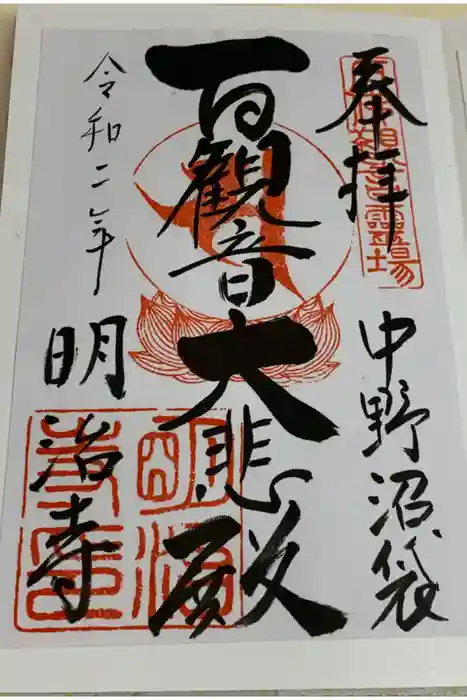 奉拝
百観音霊場
中野沼袋
百観音大悲殿
令和二年
明治寺
明治寺印